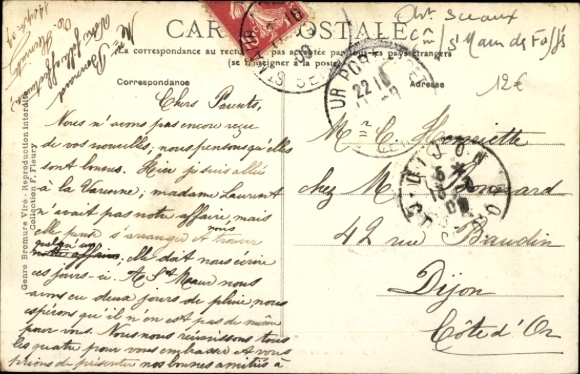 CARTE POSTALE
La correspondance au recto n'est pas acceptée par tous les pays étrangers
(se renseigner à la poste)
Correspondance
Adresse
Chers Parents,
Nous n'avons pas encore reçu
de vos nouvelles; nous pensons qu'elles
sont bonnes. Hier je suis allée
à la Varenne; madame Laurent
n'avait pas notre affaire, mais
elle peut s'arranger et nous trouver
quelqu'un
elle doit nous écrire
ces jours-ci. A St Maur nous
avons eu deux jours de pluie, nous
espérons qu'il n'en est pas de même
pour vous. Nous nous réunissons tous
les quatre pour vous embrasser et vous
prions de présenter nos bonnes amitiés à
M. Bonnard
Votre fille affectionnée
M. C. Henriette
chez M. Bonnard
42 rue Baudin
Dijon
Côte d'Or
Sceaux
St Maur des Fossés
12€
22
DIJON
Genre Bromure Viré - Reproduction interdite
Collection F. Fleury